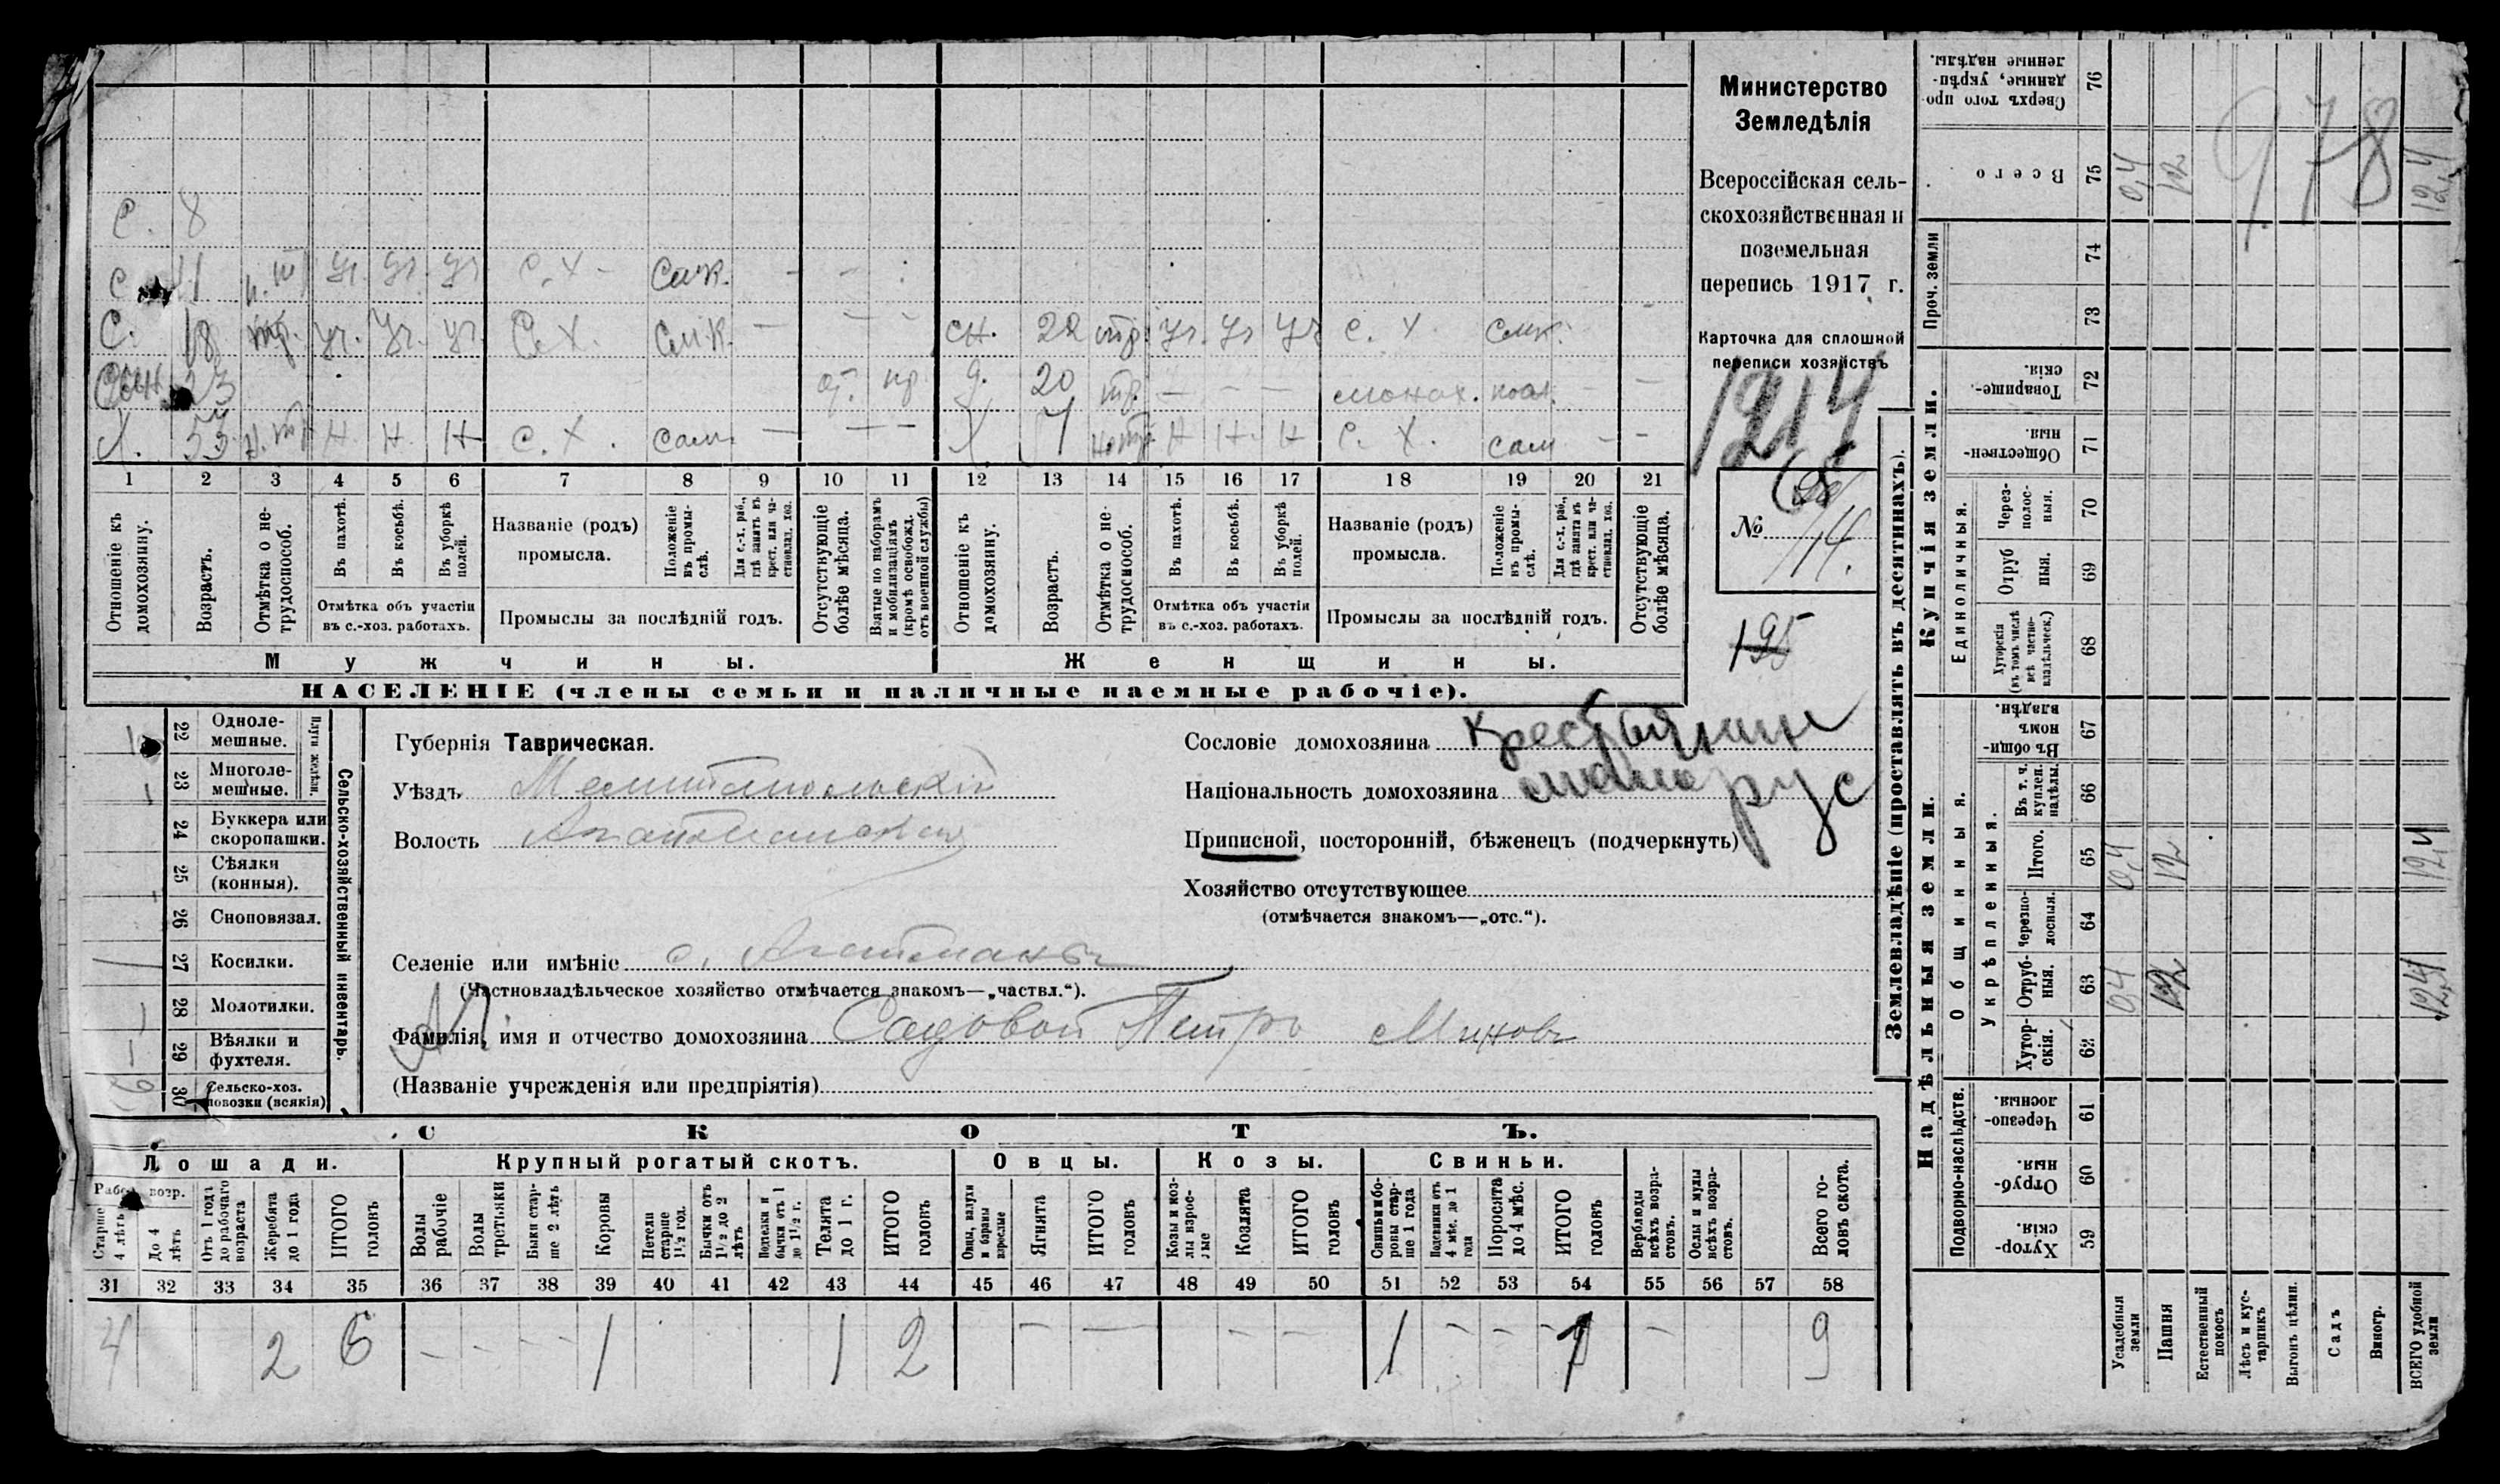 Министерство
Земледѣлія
Всероссійская сель-
скохозяйственная и
поземельная
перепись 1917 г.
Карточка для сплошной
переписи хозяйствъ
1214
№ 14.
195
С. 8
С. 11 н. тр. уч. уч. уч. С. Х. смк. - -
С. 18 тр. уч. уч. уч. С. Х. смк. - - - сн. 22 тр. уч. уч. уч. с. х. смк.
Сын 23 от. пр. д. 20 тр. - - - монах. - -
53 н. тр. н н. н с. х. сам. - - - н. тр. н н. н с. х. сам - -
1 2 3 4 5 6 7 8 9 10 11 12 13 14 15 16 17 18 19 20 21
Отношеніе къ домохозяину.
Возрастъ.
Отмѣтка о не-трудоспособ.
Въ пахотѣ.
Въ косьбѣ.
Въ уборкѣ полей.
Отмѣтка объ участіи въ с.-хоз. работахъ.
Названіе (родъ) промысла.
Положеніе въ промы-слѣ.
Для с.-х. раб., гдѣ занятъ въ крест. или ча-стновлад. хоз.
Промыслы за послѣдній годъ.
Отсутствующіе болѣе мѣсяца.
Взятые по наборамъ и мобилизаціямъ (кромѣ освобожд. отъ военной службы)
Отношеніе къ домохозяину.
Возрастъ.
Отмѣтка о не-трудоспособ.
Въ пахотѣ.
Въ косьбѣ.
Въ уборкѣ полей.
Отмѣтка объ участіи въ с.-хоз. работахъ.
Названіе (родъ) промысла.
Положеніе въ промы-слѣ.
Для с.-х. раб., гдѣ занята въ крест. или ча-стновлад. хоз.
Промыслы за послѣдній годъ.
Отсутствующіе болѣе мѣсяца.
Мужчины.
Женщины.
НАСЕЛЕНІЕ (члены семьи и наличные наемные рабочіе).
22 Одноле-мешные.
23 Многоле-мешные.
Плуги желѣзн.
24 Буккера или скоропашки.
25 Сѣялки (конныя).
26 Сноповязал.
27 Косилки.
28 Молотилки.
29 Вѣялки и фухтеля.
30 Сельско-хоз. повозки (всякія)
Сельско-хозяйственный инвентарь.
Губернія Таврическая.
Уѣздъ Мелитопольскій
Волость Агайманская
Селеніе или имѣніе с. Агайманъ
(Частновладѣльческое хозяйство отмѣчается знакомъ—„частвл.“).
Фамилія, имя и отчество домохозяина Садовой Петро Миновъ
(Названіе учрежденія или предпріятія)
Сословіе домохозяина крестьянин
Національность домохозяина малорус
Приписной, посторонній, бѣженецъ (подчеркнуть)
Хозяйство отсутствующее
(отмѣчается знакомъ—„отс.“).
СКОТЪ.
Лошади.
Крупный рогатый скотъ.
Овцы.
Козы.
Свиньи.
Старше 4 лѣтъ
До 4 лѣтъ
Отъ 1 года до рабочаго возраста
Жеребята до 1 года
ИТОГО головъ
Волы рабочіе
Волы третьяки
Быки стар-ше 2 лѣтъ
Коровы
Нетели старше 1½ год.
Бычки отъ 1½ до 2 лѣтъ
Телки и бычки отъ 1 до 1½ г.
Телята до 1 г.
ИТОГО головъ
Овцы, валухи и бараны взрослые
Ягнята
ИТОГО головъ
Козы и коз-лы взрос-лые
Козлята
ИТОГО головъ
Свиньи и бо-ровы стар-ше 1 года
Подсвинки отъ 4 мѣс. до 1 года
Поросята до 4 мѣс.
ИТОГО головъ
Верблюды всѣхъ возра-стовъ.
Ослы и мулы всѣхъ возра-стовъ.
Всего го-ловъ скота.
31 32 33 34 35 36 37 38 39 40 41 42 43 44 45 46 47 48 49 50 51 52 53 54 55 56 57 58
4 2 6 - - - - 1 1 2 - - - - 1 - - 1 - 9
Землевладѣніе (проставлять въ десятинахъ).
Надѣльныя земли.
Купчія земли.
Проч. земли
Подворно-наслѣдств.
Общинныя.
Укрѣпленныя.
Единоличныя.
Сверхъ того про-данные, укрѣп-ленные надѣлы. 76
Всего 75 0,4 12 12,4
74
73
Товарище-скія. 72
Обществен-ныя. 71
Через-полос-ныя. 70
Отруб-ныя. 69
Хуторскія (въ томъ числѣ всѣ частно-владѣльческ.) 68
Въ общин-номъ владѣн. 67
Въ т. ч. куплен. надѣлы. 66
Итого. 65 0,4 12 12,4
Черезпо-лосныя. 64
Отруб-ныя. 63 0,4 12 12,4
Хутор-скія. 62
Черезпо-лосныя. 61
Отруб-ныя. 60
Хутор-скія. 59
Усадебныя земли
Пашня
Естественный покосъ
Лѣсъ и кус-тарникъ
Выгонъ цѣлин.
Садъ
Виногр.
ВСЕГО удобной земли
978